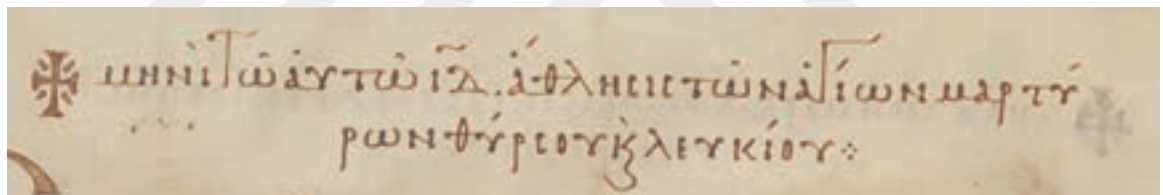 ✠ μηνὶ τῶ ἀυτῶ ιδ. ἄθλησις τῶν ἁγίων μαρτύ
ρων θύρσου κ λευκίου ⁘